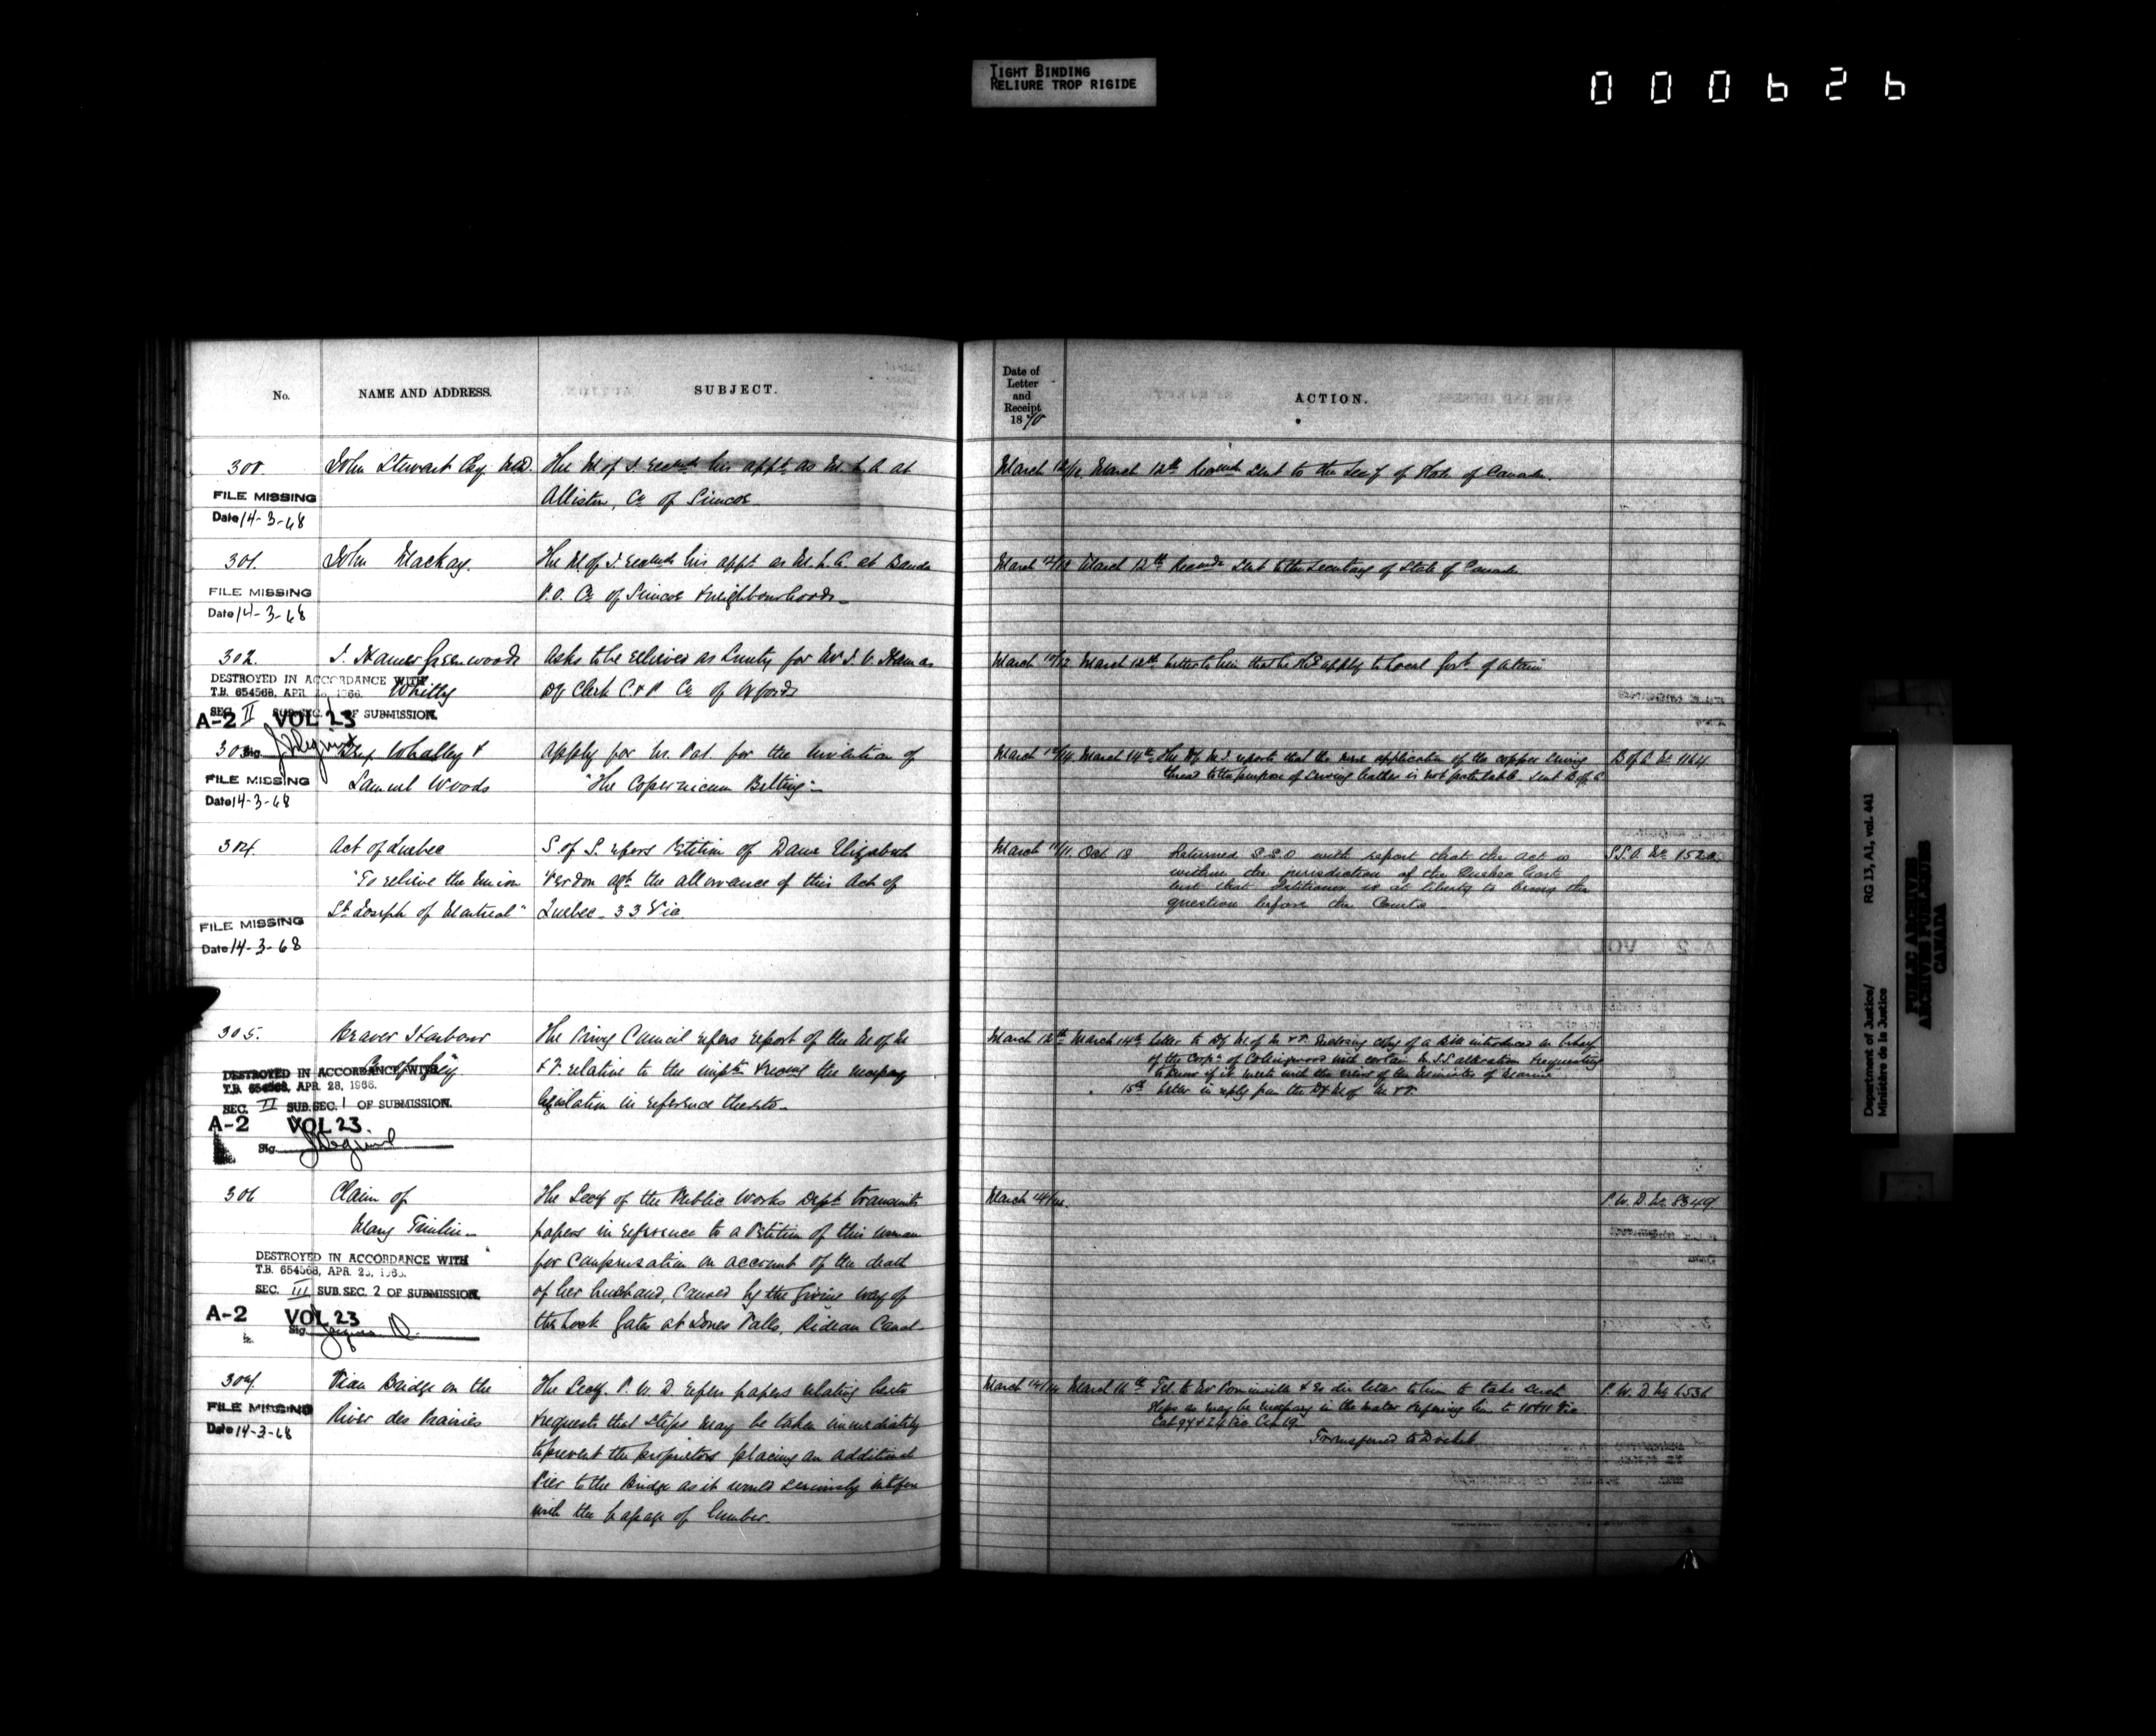 TIGHT BINDING
RELIURE TROP RIGIDE
000626
No.
NAME AND ADDRESS.
SUBJECT.
Date of
Letter
and
Receipt
1870
ACTION.
300.
John Stewart Esq. M.D.
The M. of J. his appt. as M. L. A at
Alliston, Co. of Simcoe
March 12/12. March 12th sent to the Secy of State of Canada.
FILE MISSING
Date 14-3-68
301.
John Mackay.
The M. of J. his appt. as M. L. A. at Banda
P.O. Co. of Simcoe & neighbourhood
March 12/12 March 12th sent to the Secretary of State of Canada
FILE MISSING
Date 14-3-68
302.
J. Hamer Greenwood
Whitby
Asks to be relieved as Surety for Mr. J. V. Ham as
Dy Clerk C & P Co. of Oxford
March 10/12 March 12th Letter to him that he shd apply to Local Govt. of
DESTROYED IN ACCORDANCE WITH
T.B. 654568, APR. 28, 1966.
SEC. II SUB.SEC. 1 OF SUBMISSION.
A-2 VOL 23
Sig.
303
Whalley &
Samuel Woods
apply for Lr. Pat. for the invention of
"The Copernicum Belting"
March 12/14. March 14th The Dy M. J. reports that the mere application of the copper sewing
thread to the purpose of sewing leather is not patentable. Sent B. of A
B of A No. 1164
FILE MISSING
Date 14-3-68
304.
Act of Quebec
"To relieve the Union
St. Joseph of Montreal"
S. of S. refers Petition of Dame Elizabeth
Verdon agt. the allowance of this Act of
Quebec 33 Vic.
March 11/11. Oct 18 Returned S.S.O with report that the act is
within the jurisdiction of the Quebec Govt
but that Petitioner is at liberty to bring the
question before the Courts
S.S.O. No. 1520
FILE MISSING
Date 14-3-68
305.
Beaver Harbour
The Privy Council refers report of the M. of M
& F. relative to the & the necessary
legislation in reference thereto
March 12th March 14th Letter to Dy M. of M. & F. enclosing copy of a Bill introduced on behalf
of the Corpn. of Collingwood with certain M.S.S alteration & requesting
to know if it meets with the views of the Minister of Marine
15th Letter in reply from the Dy M. of M. & F.
DESTROYED IN ACCORDANCE WITH
T.B. 654568, APR. 28, 1966.
SEC. II SUB.SEC. 1 OF SUBMISSION.
A-2 VOL 23.
Sig.
306
Claim of
Mary Timlin
The Secy of the Public Works Dept. transmits
papers in reference to a Petition of this woman
for compensation on account of the death
of her husband, caused by the giving way of
the Lock Gates at Jones Falls, Rideau Canal
March 14/14.
P. W. D. No. 8349
DESTROYED IN ACCORDANCE WITH
T.B. 654568, APR. 28, 1966.
SEC. III SUB.SEC. 2 OF SUBMISSION.
A-2 VOL 23
Sig.
307.
Viau Bridge on the
River des Prairies
The Secy. P. W. D refers papers relating hereto
& requests that steps may be taken immediately
to prevent the proprietors placing an additional
Pier to the Bridge as it would seriously interfere
with the passage of lumber.
March 14/14 March 16th Tel. to Mr Pominville & letter to him to take such
steps as may be necessary in the matter referring him to 10 & 11 Vic
Cap 97 & 24 Vic. Cap 19
Transferred to Docket
P. W. D. No 6536
FILE MISSING
Date 14-3-68
RG 13, A1, vol. 441
Department of Justice/
Ministère de la Justice
PUBLIC ARCHIVES
ARCHIVES PUBLIQUES
CANADA